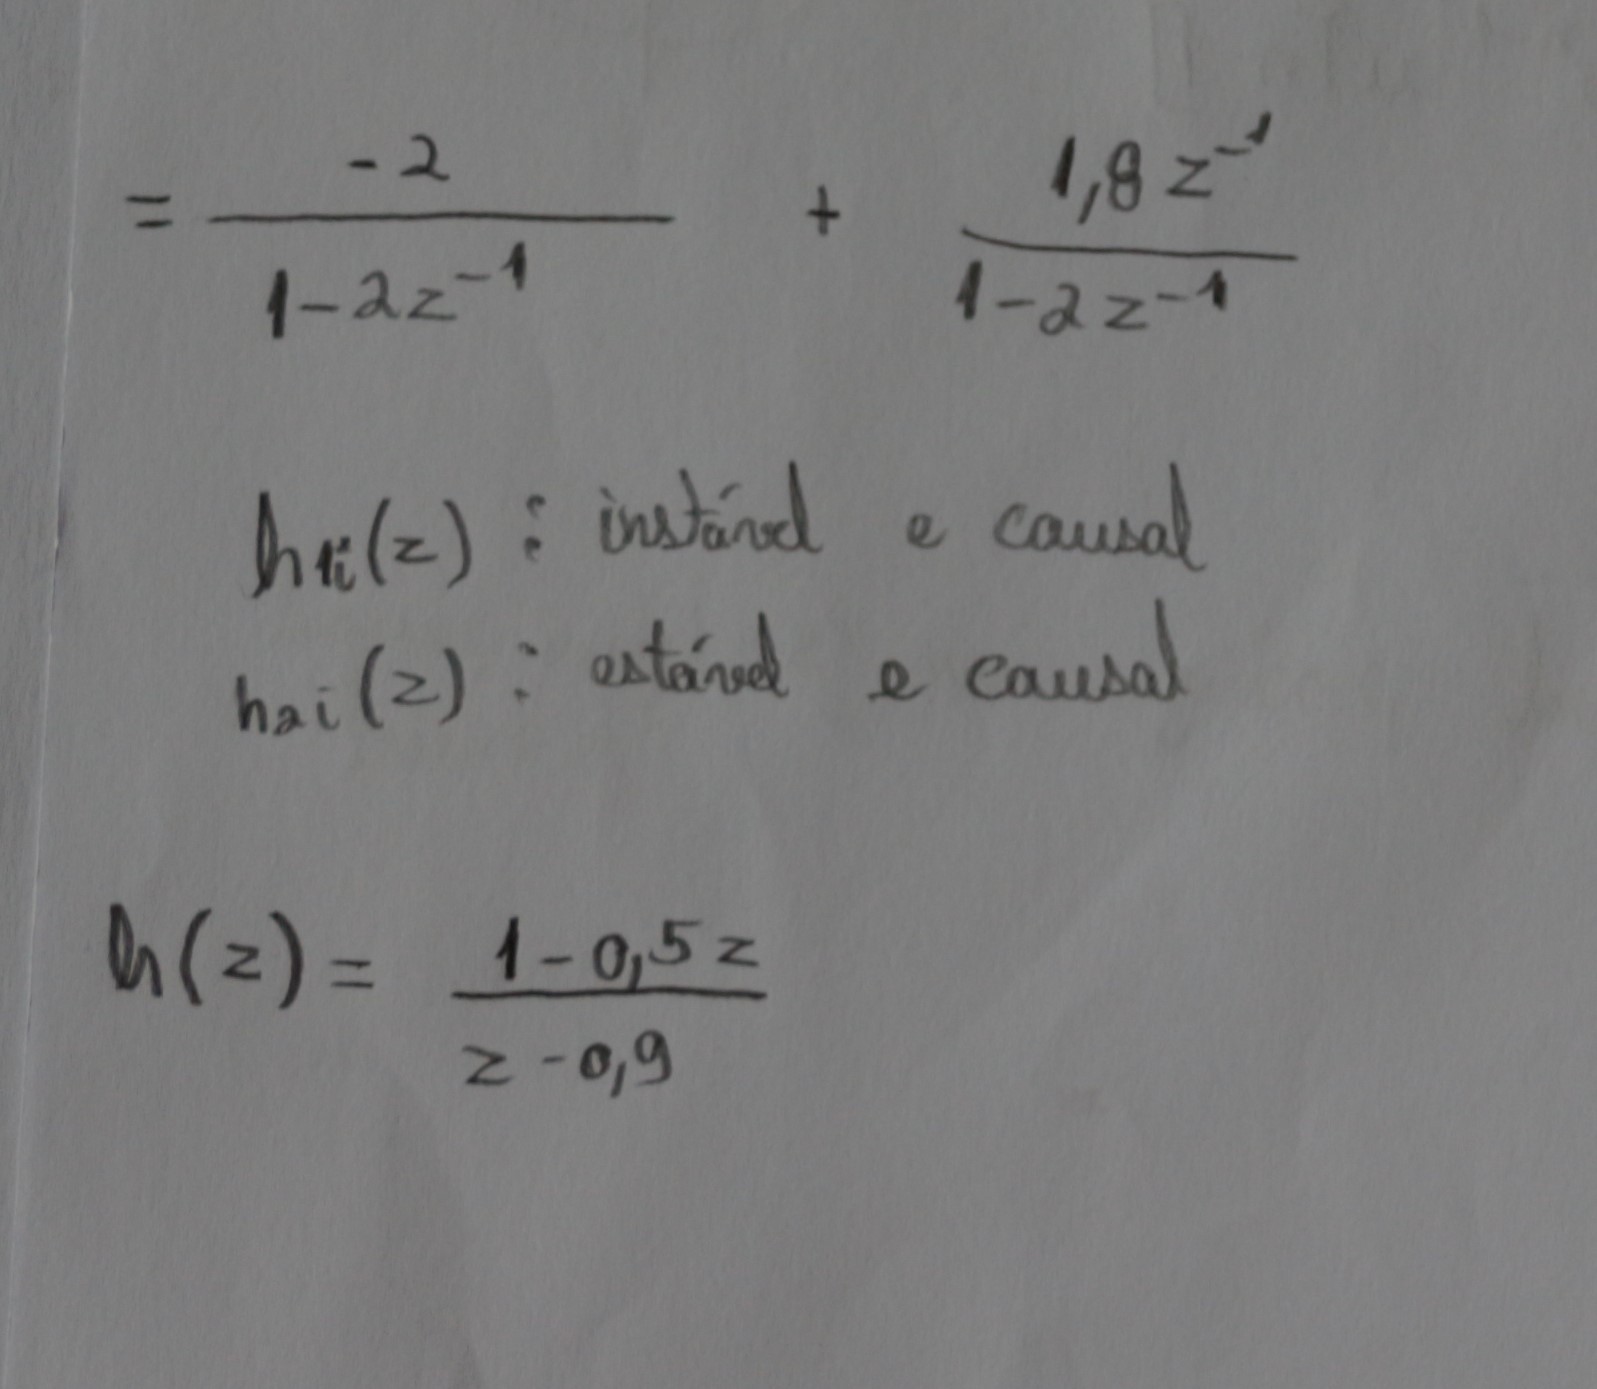 = -2 / 1-2z⁻¹ + 1,8z⁻¹ / 1-2z⁻¹
h₁ᵢ(z) : instável e causal
h₂ᵢ(z) : estável e causal
h(z) = 1-0,5z / z-0,9